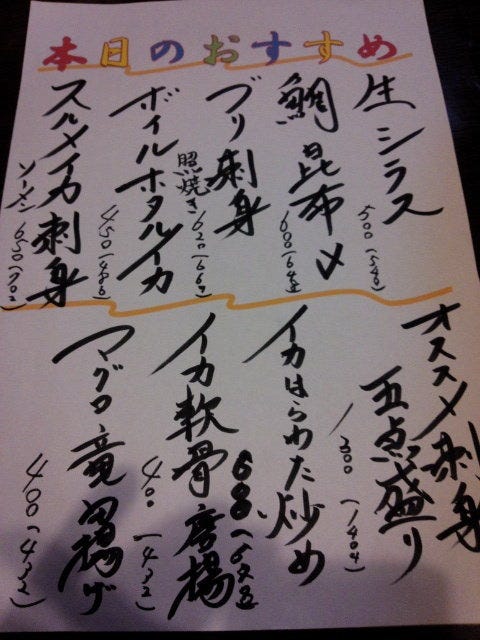 本日のおすすめ
生シラス
500(540)
鯛昆布〆
600(648)
ブリ刺身
照焼き
620(667)
ボイルホタルイカ
450(486)
スルメイカ刺身
ソーメン
650(702)
オススメ刺身
五点盛り
1300(1404)
イカはらわた炒め
イカ軟骨唐揚
400(432)
マグロ竜田揚げ
400(432)